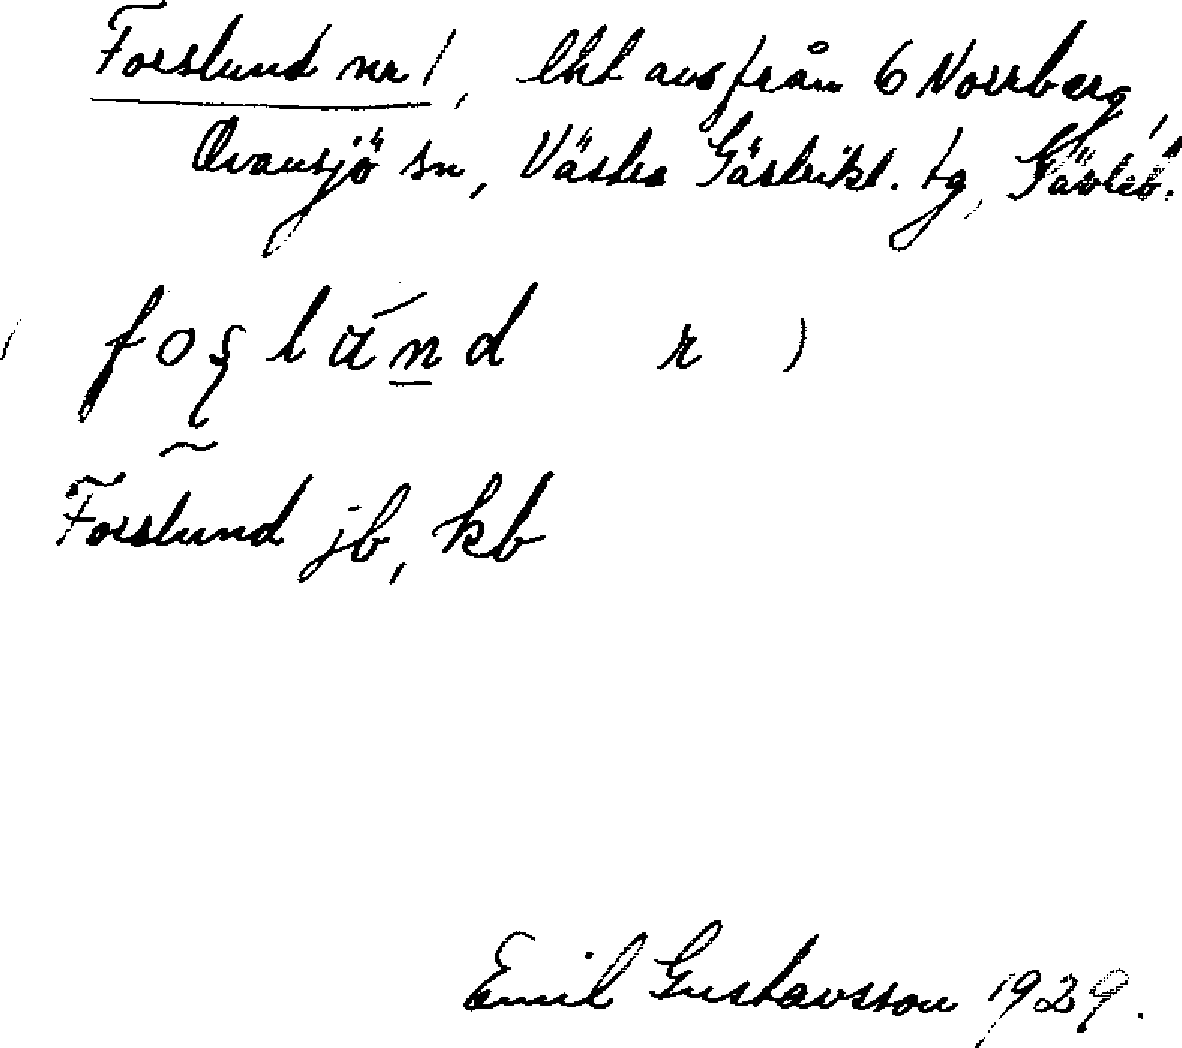 Forslund nr 1, lht avs från 6 Norrberg,
Ovansjö sn, Västra Gästrikl. tg, Gävleb.
Forslund jb, kb
Emil Gustavsson 1929.